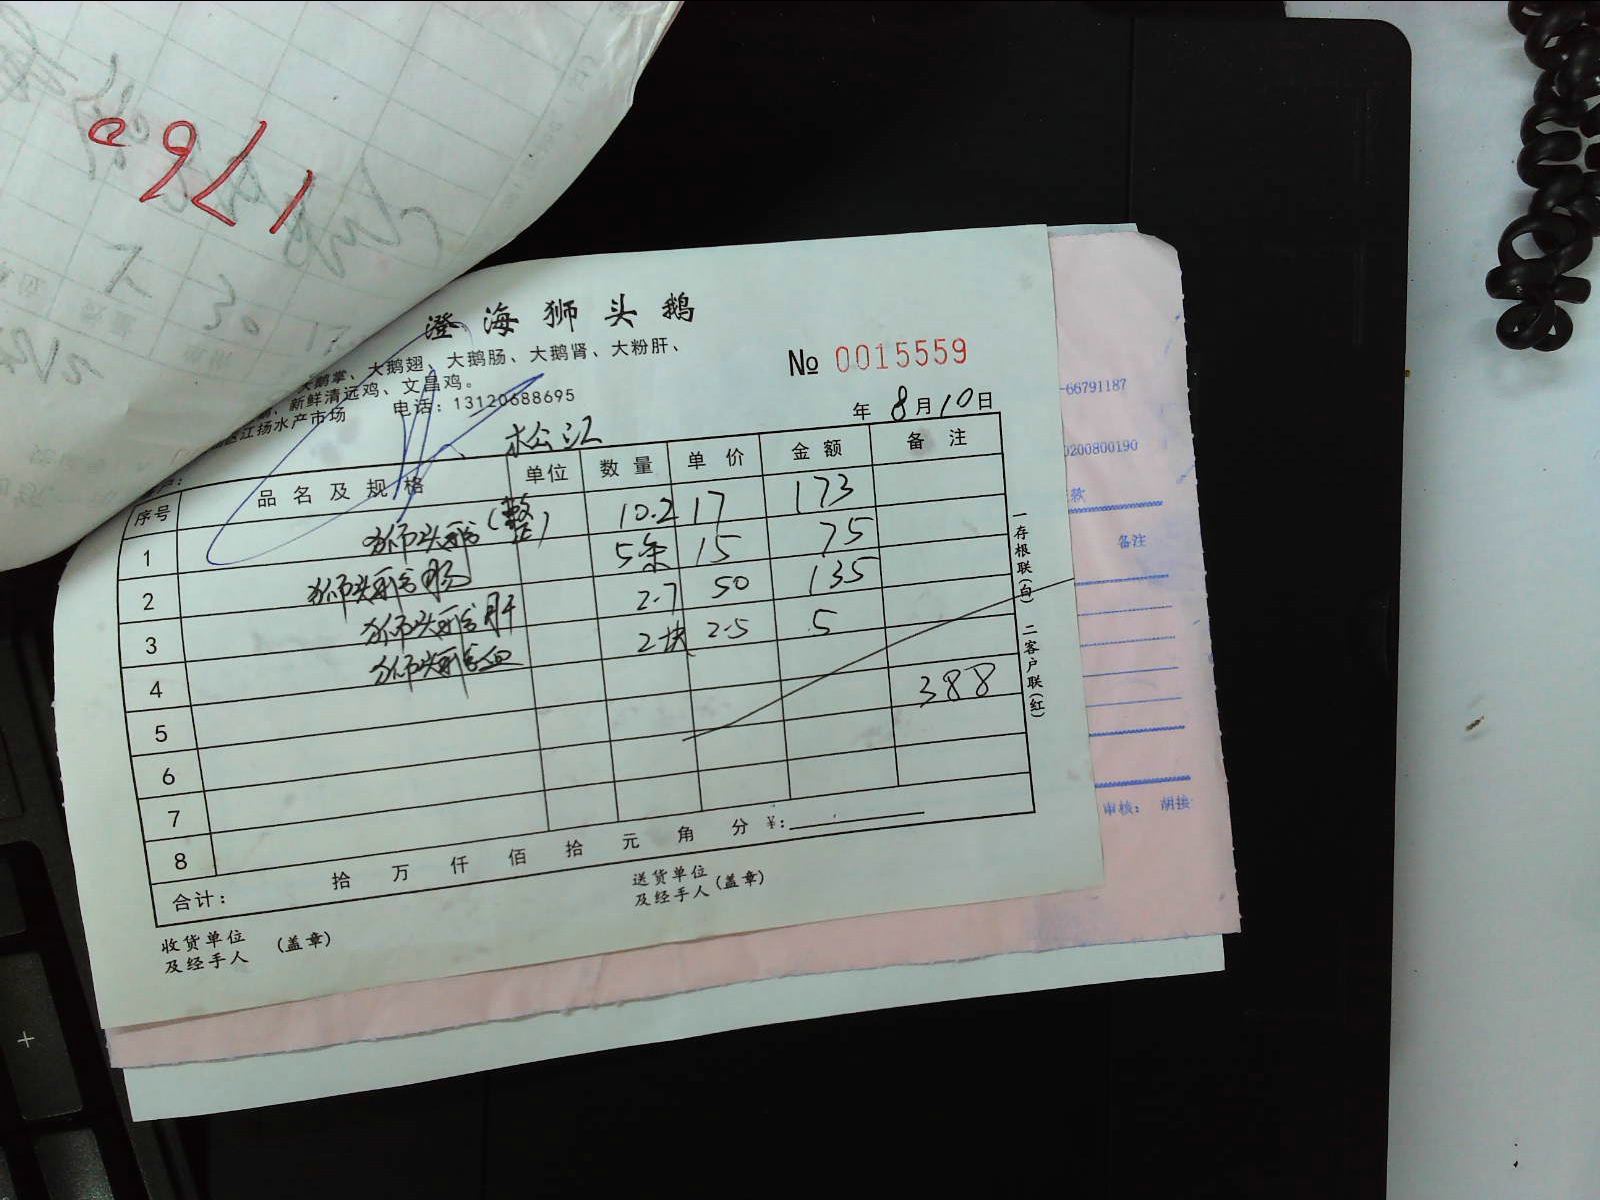 1760
澄海狮头鹅
大鹅掌、大鹅翅、大鹅肠、大鹅肾、大粉肝、
新鲜清远鸡、文昌鸡。
江扬水产市场 电话：13120688695
№ 0015559
年 8月10日
松江
序号 品名及规格 单位 数量 单价 金额 备注
1 狮头鹅(整) 10.2 17 173
2 狮头鹅肠 5条 15 75
3 狮头鹅肝 2.7 50 135
4 狮头鹅血 2块 2.5 5
5 388
6
7
8
合计： 拾 万 仟 佰 拾 元 角 分 ¥:
收货单位及经手人 (盖章)
送货单位及经手人 (盖章)
一存根联(白) 二客户联(红)
-66791187
0200800190
款
备注
审核： 胡接
+